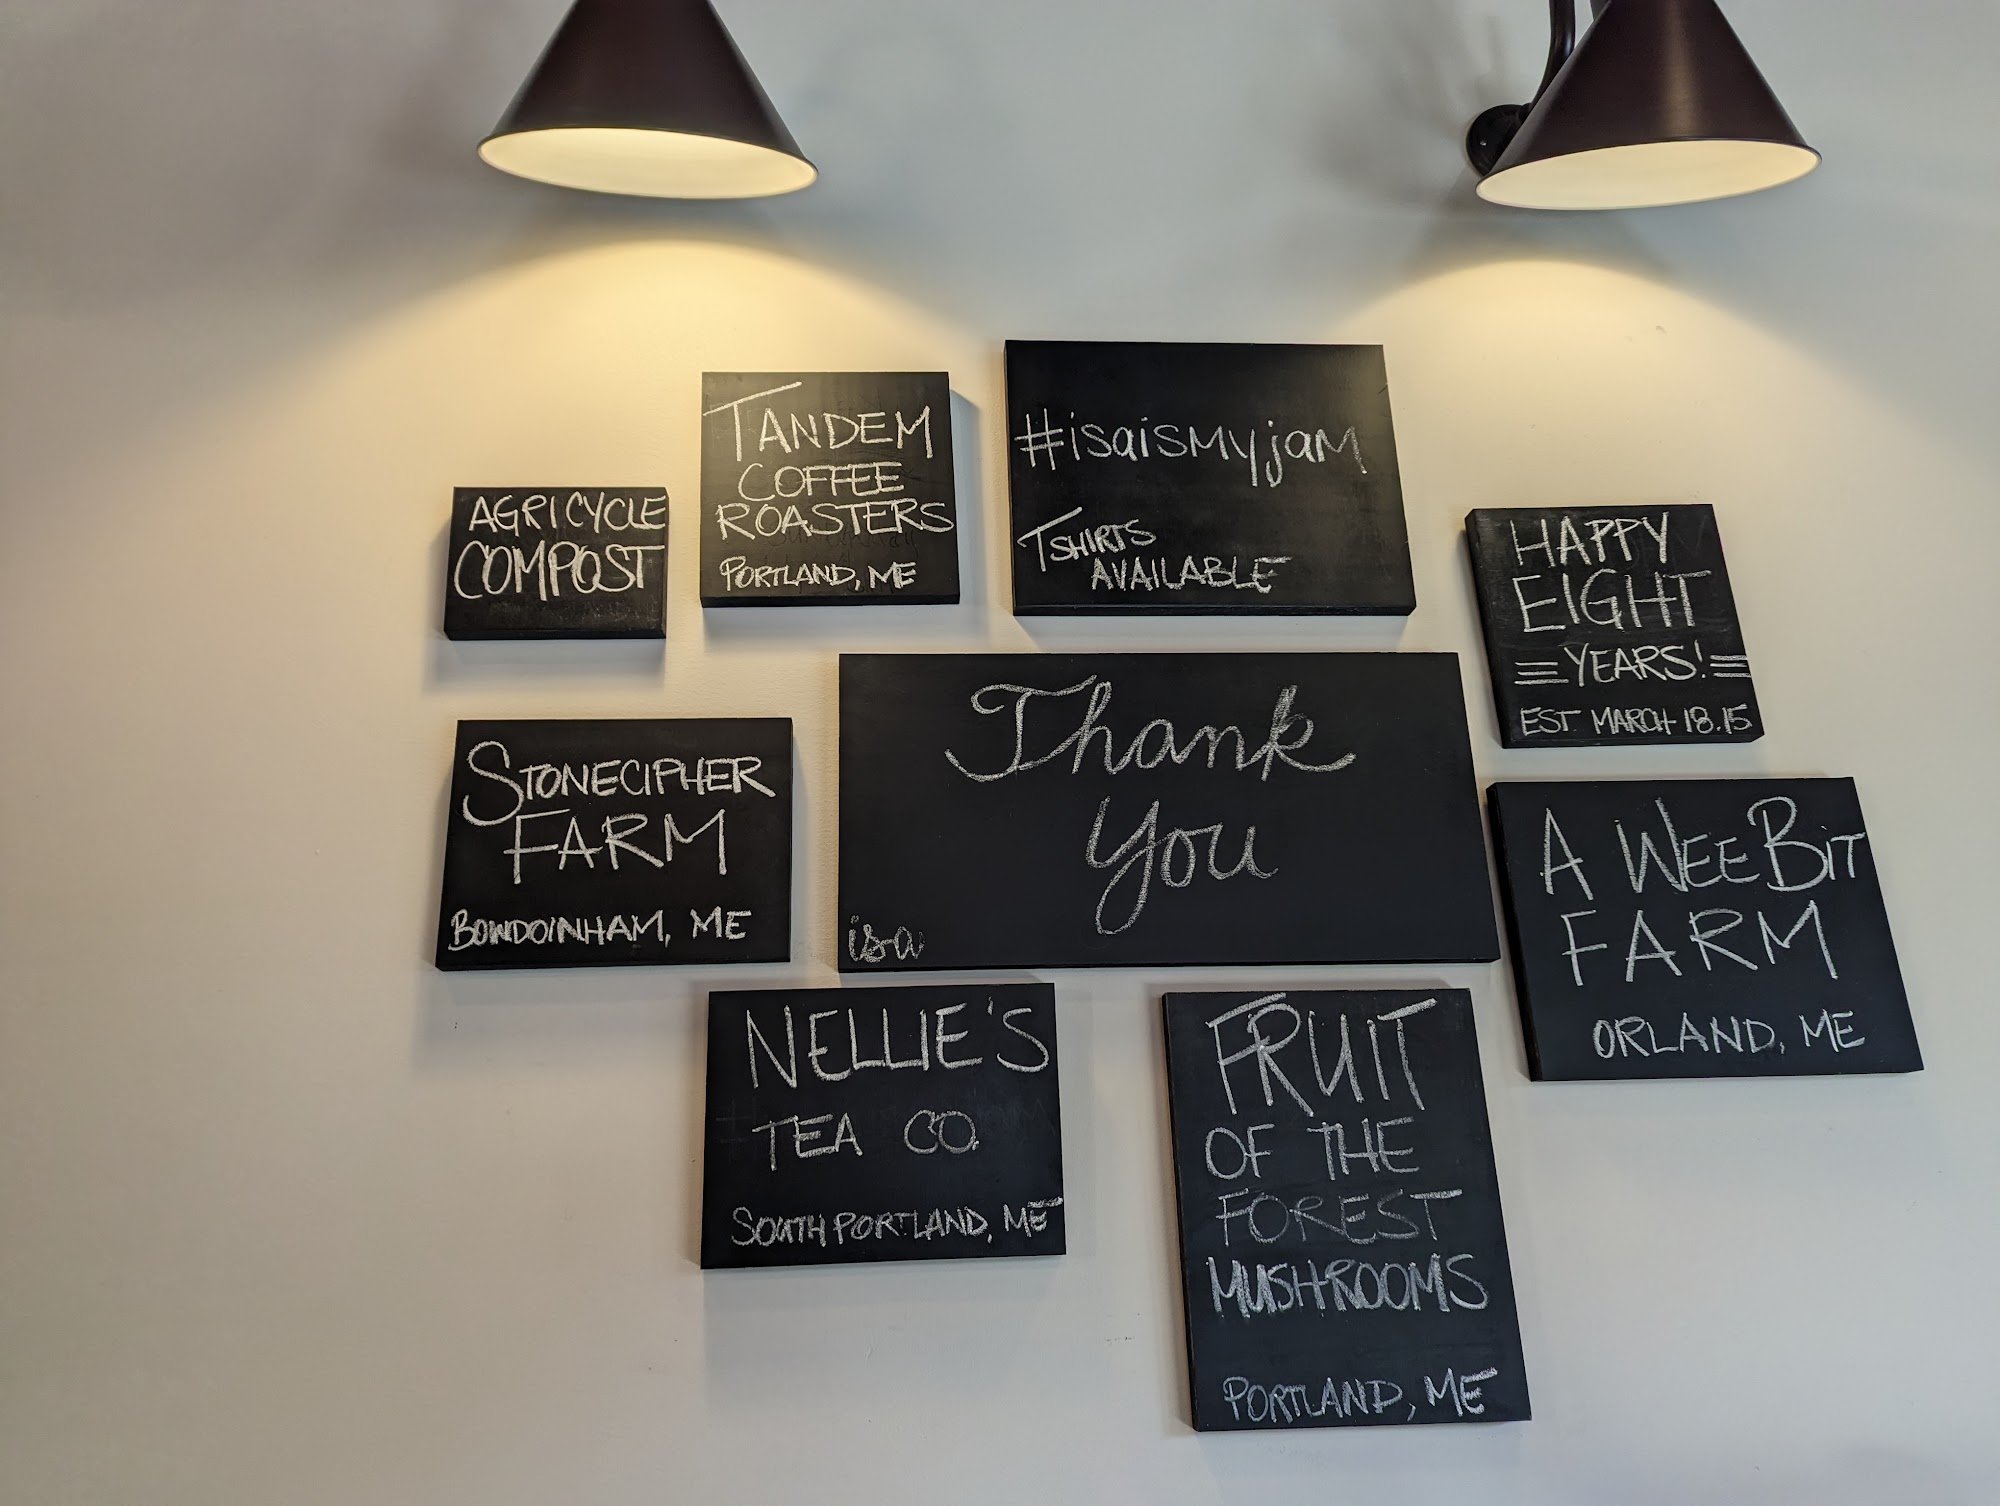 AGRICYCLE
COMPOST
TANDEM
COFFEE
ROASTERS
PORTLAND, ME
#isaismyjam
TSHIRTS
AVAILABLE
HAPPY
EIGHT
YEARS!
EST. MARCH 18.15
STONECIPHER
FARM
BOWDOINHAM, ME
Thank
You
isa
A WEE BIT
FARM
ORLAND, ME
NELLIE'S
TEA CO.
SOUTH PORTLAND, ME
FRUIT
OF THE
FOREST
MUSHROOMS
PORTLAND, ME